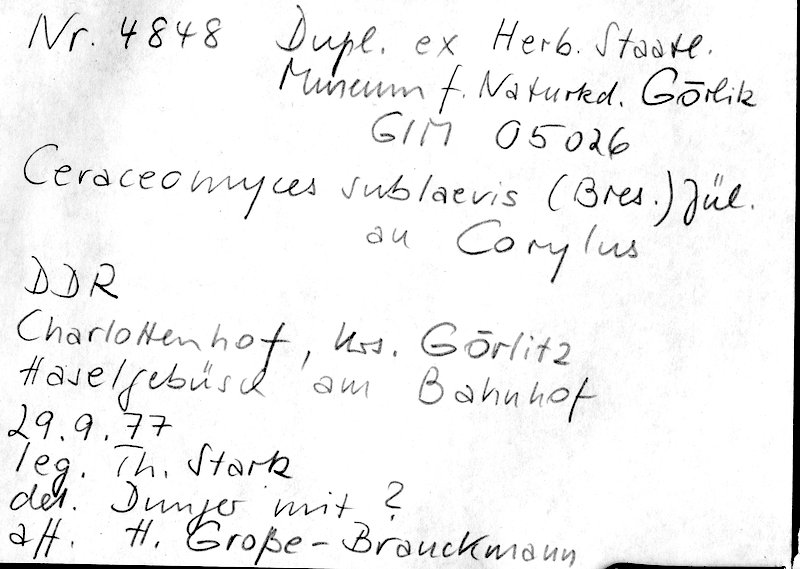 Nr. 4848 Dupl. ex Herb. Staatl.
Museum f. Naturkd. Görlitz
GLM 05026
Ceraceomyces sublaevis (Bres.) Jül.
an Corylus
DDR
Charlottenhof, Krs. Görlitz
Haselgebüsch am Bahnhof
29.9.77
leg. Th. Stark
det. Dunger mit ?
aff. H. Große-Brauckmann